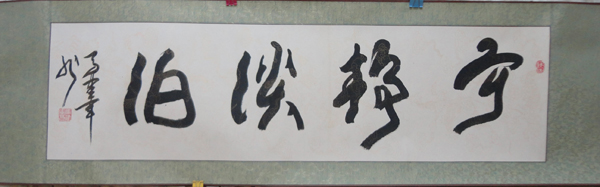 宁静淡泊